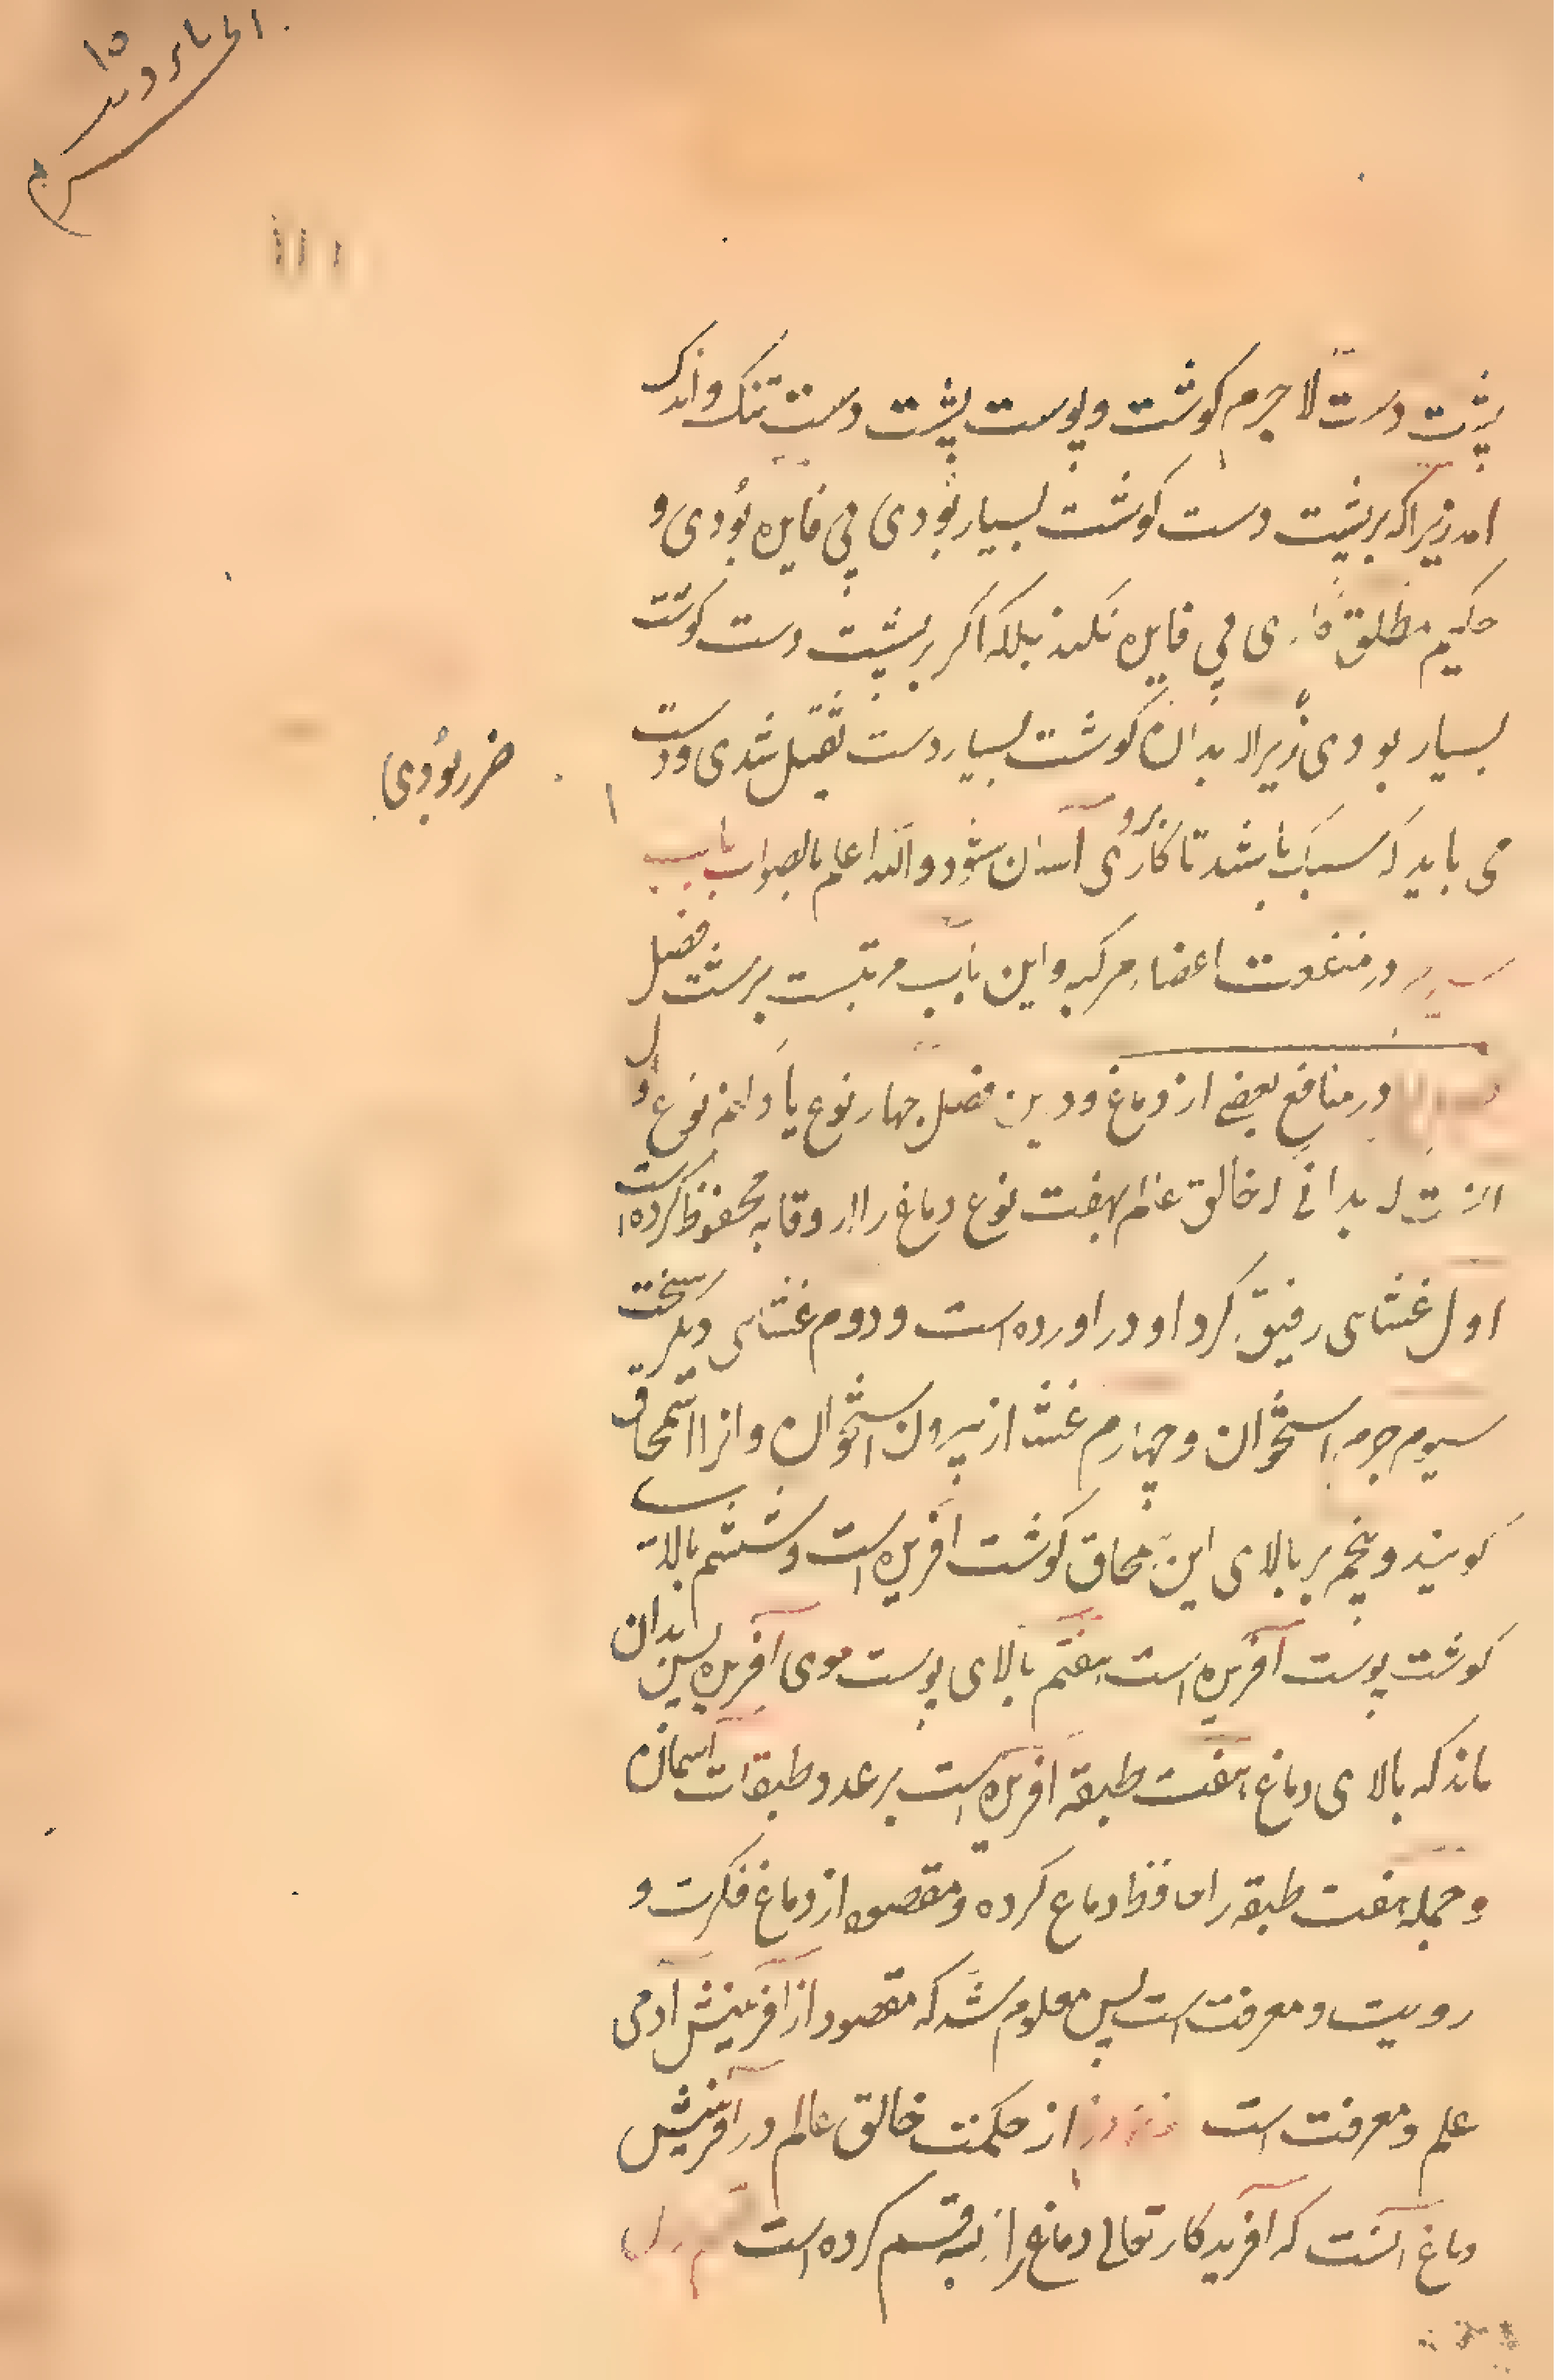 پشت دست لاجرم کوشت و پوست پشت دست تنک و اندک
امد زیراکه بر پشت دست کوشت بسیار بودی بی فایده بودی و
حکیم مطلق بی فایده نکند بلکه اکر بر پشت دست کوشت
بسیار بودی زیرا بدان کوشت بسیار دست ثقیل شدی و دست
ضرر بودی
می باید که سبک باشد تا کار بروی آسان شود والله اعلم بالصواب باب
در منفعت اعضاء مرکبه و این باب مرتبست بر شت فصل
در منافع بعضی از دماغ و درین فصل چهار نوع یاد نوع
بدانی خالق عالم بهفت نوع دماغ را وقایه محفوظ کرده است
اول غشای رقیق کرد او در اورده است و دوم غشای دیکر سخت
سیوم جرم استخوان و چهارم غشا از بیرون استخوان و انرا سمحاق
کویند و پنجم بر بالای این سمحاق کوشت افریده است و ششم بالای
کوشت پوست آفریده است هفتم بالای پوست موی آفریده پس بدان
ماند که بالای دماغ هفت طبقه افریده است بر عدد طبقات آسمان
و جمله هفت طبقه را حافظ دماغ کرده و مقصود از دماغ فکرت و
رویت و معرفت است پس معلوم شد که مقصود از آفرینش آدمی
علم و معرفت است از حکمت خالق عالم در آفرینش
دماغ آنست که آفریدکار تعالی دماغ را بسه قسم کرده است